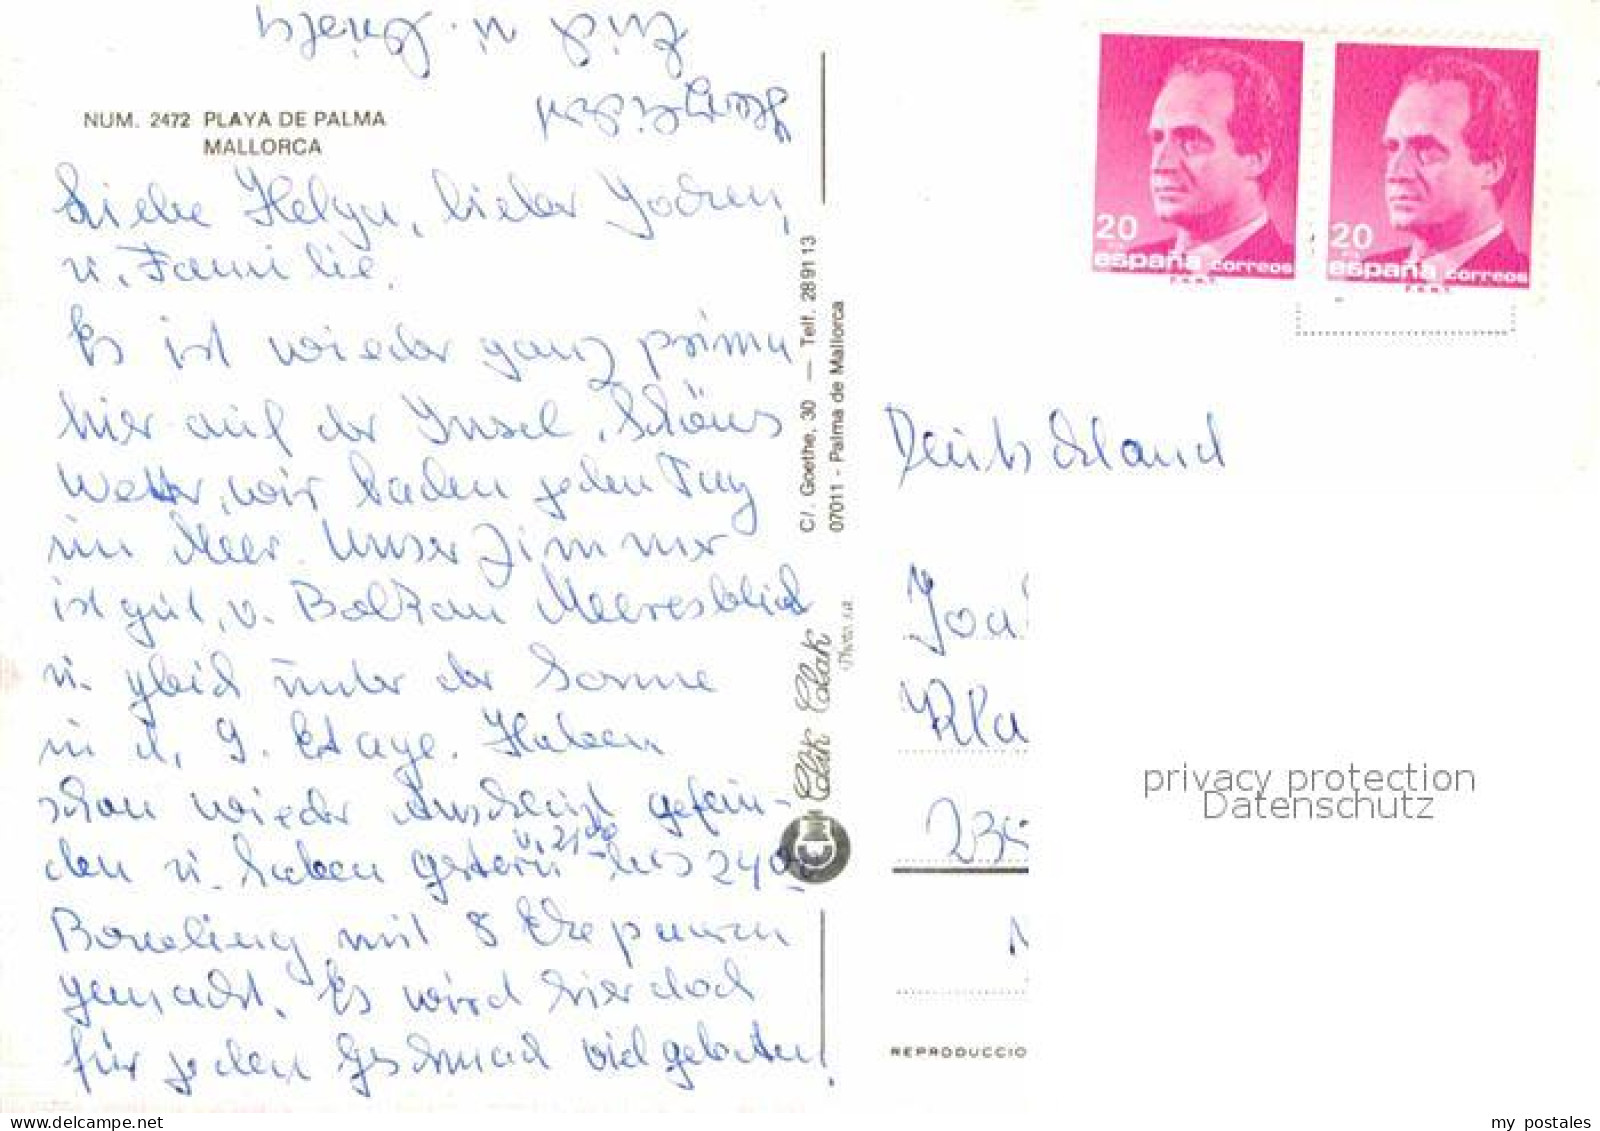 NUM. 2472 PLAYA DE PALMA
MALLORCA
Liebe Helga, lieber Jochen,
u. Familie.
Es ist wieder ganz prima
hier auf der Insel. Schönes
Wetter, wir baden jeden Tag
im Meer. Unser Zimmer
ist gut, v. Balkon Meeresblick
u. gleich unter der Sonne
in d. 9. Etage. Haben
schon wieder Anschluss gefun-
den u. haben gestern v. 21.00 bis 24.00
Bowling mit 8 Ehepaaren
gemacht. Es wird hier doch
für jeden Geschmack viel geboten!
Herzlichst
C/. Goethe, 30 — Telf. 28 91 13
07011 - Palma de Mallorca
Clik Clak
20
españa correos
F.N.M.T.
20
españa correos
F.N.M.T.
Deutschland
Joa
Kla
REPRODUCCIO
privacy protection
Datenschutz
my postales